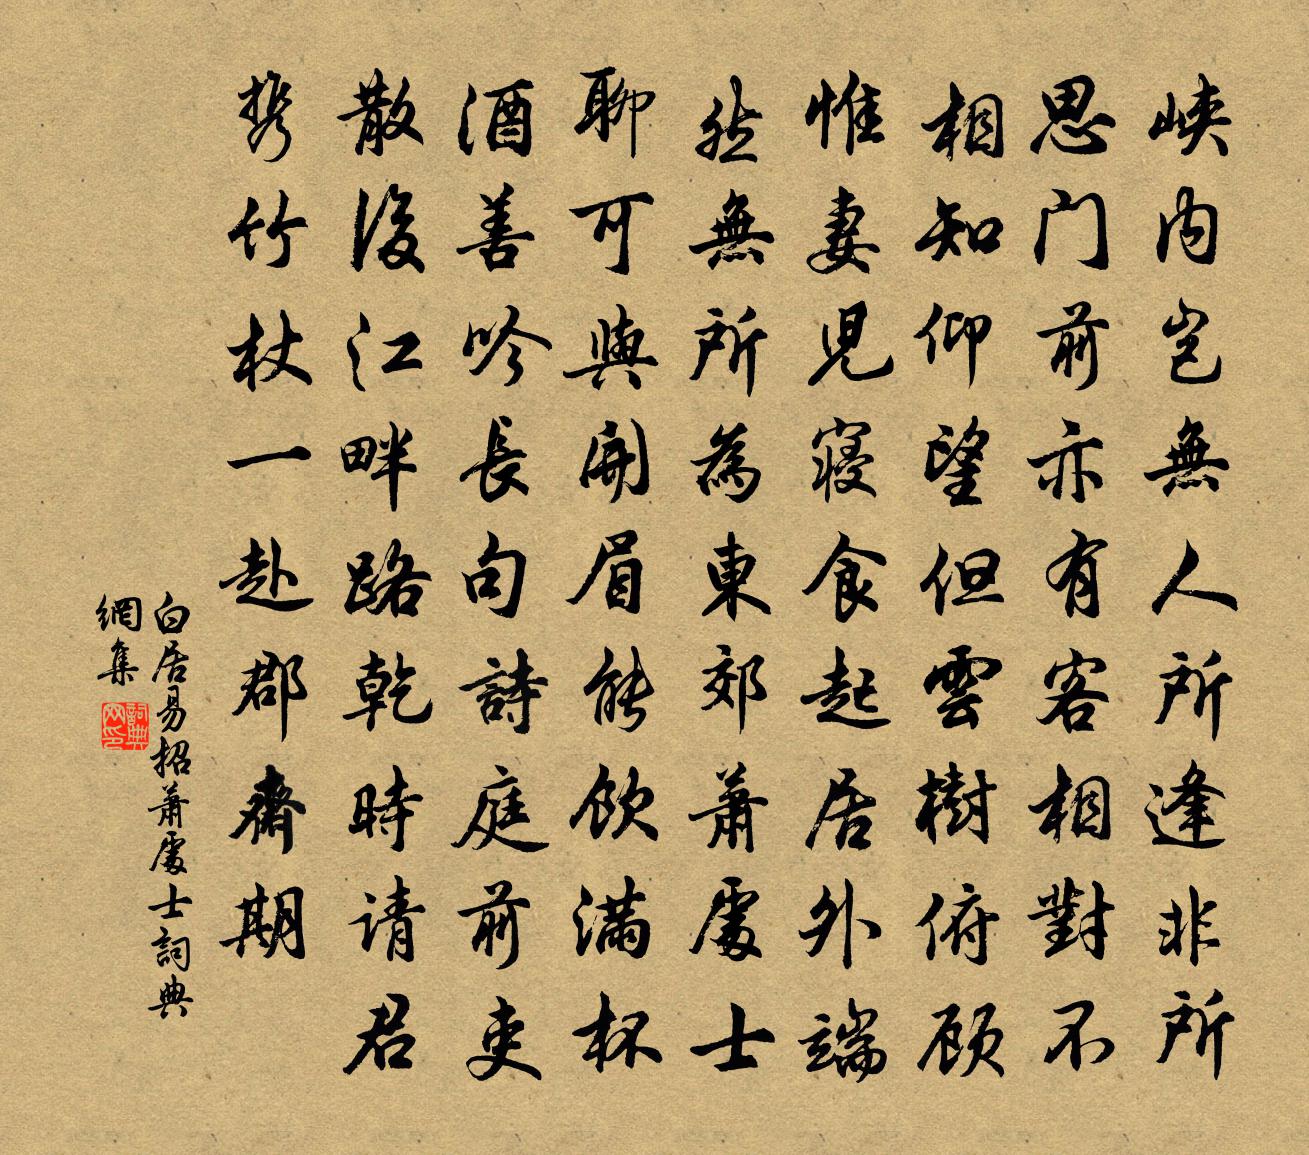 峽内豈無人所逢非所
思门前亦有客相對不
相知仰望但雲樹俯顾
惟妻児寝食起居外端
然無所為東郊蕭處士
聊可與開眉能飲满杯
酒善吟長句詩庭前吏
散後江畔路乾時请君
携竹杖一赴郡齋期
白居易招蕭處士詞典
網集
詞典
网印